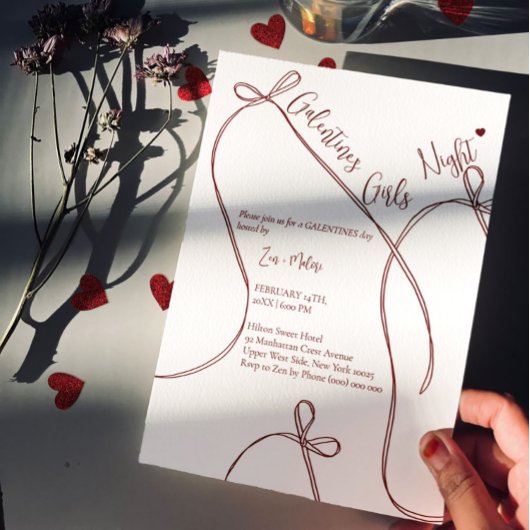 Galentines
Girls
Night
Please join us for a GALENTINES day
hosted by
Zen + Malori
FEBRUARY 14TH,
20XX | 6:00 PM
Hilton Sweer Hotel
92 Manhattan Crest Avenue
Upper West Side, New York 10025
Rsvp to Zen by Phone (000) 000 000